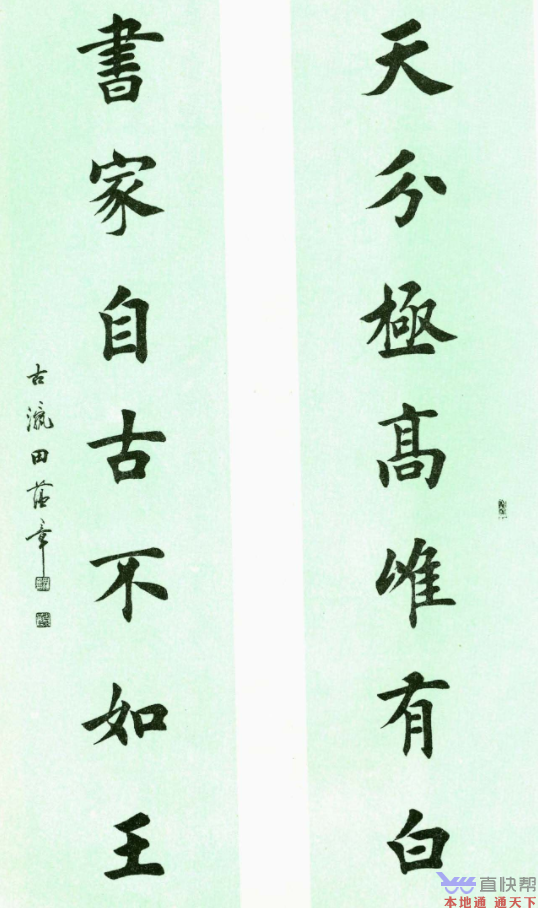 天分極高唯有白
書家自古不如王
古瀛田蕴章
直快帮
本地通 通天下